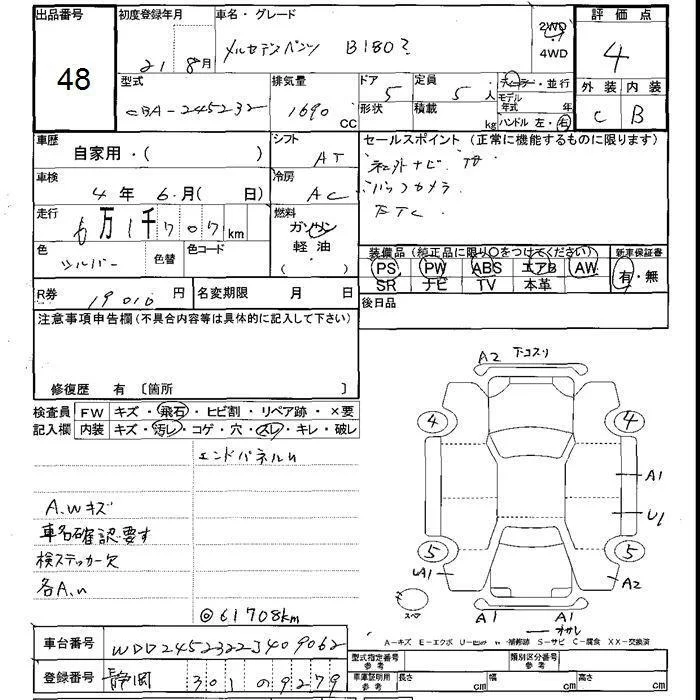 出品番号
48
初度登録年月
21 8月
車名・グレード
メルセデスベンツ B180
2WD
4WD
評価点
4
外装 内装
C B
型式
CBA-245232
排気量
1690 CC
ドア 5
形状
定員 5人
積載 kg
ディーラー・並行
モデル年式 年
ハンドル 左・右
車歴
自家用・( )
シフト
AT
車検
4年6月( 日)
冷房
AC
走行
6万1千707km
燃料
ガソリン
軽油
( )
色
シルバー
色替
色コード
R券
19010円
名変期限 月 日
セールスポイント (正常に機能するものに限ります)
社外ナビ
バックカメラ
ETC
装備品 (純正品に限り○をつけてください)
PS PW ABS エアB AW
SR ナビ TV 本革
新車保証書
有・無
後日品
注意事項申告欄(不具合内容等は具体的に記入して下さい)
修復歴 有 〔箇所 〕
検査員
記入欄
FW キズ・飛石・ヒビ割・リペア跡・×要
内装 キズ・汚レ・コゲ・穴・スレ・キレ・破レ
エンドパネルU
A.Wキズ
車名確認要す
検ステッカー欠
各A.U
◎61708km
A2 下コスリ
4 4
A1
U1
5 5
UA1
A2
スペア
A1 A1
A-キズ E-エクボ U-ヒコミ W-補修跡 S-サビ C-腐食 XX-交換済
車台番号
WDD2452322J409062
登録番号
静岡 301 の 9279
型式指定番号
参考
類別区分番号
参考
車庫証明用
参考
長さ cm
幅 cm
高さ cm